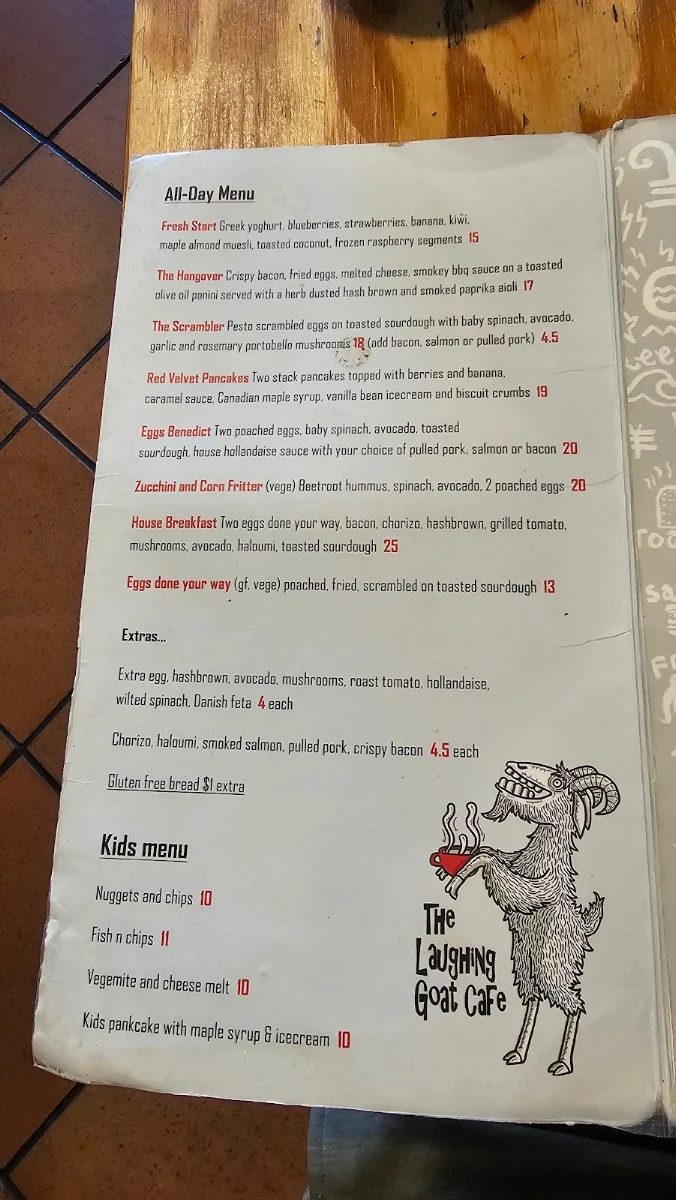 All-Day Menu
Fresh Start Greek yoghurt, blueberries, strawberries, banana, kiwi,
maple almond muesli, toasted coconut, frozen raspberry segments 15
The Hangover Crispy bacon, fried eggs, melted cheese, smokey bbq sauce on a toasted
olive oil panini served with a herb dusted hash brown and smoked paprika aioli 17
The Scrambler Pesto scrambled eggs on toasted sourdough with baby spinach, avocado,
garlic and rosemary portobello mushrooms 18 (add bacon, salmon or pulled pork) 4.5
Red Velvet Pancakes Two stack pancakes topped with berries and banana,
caramel sauce, Canadian maple syrup, vanilla bean icecream and biscuit crumbs 19
Eggs Benedict Two poached eggs, baby spinach, avocado, toasted
sourdough, house hollandaise sauce with your choice of pulled pork, salmon or bacon 20
Zucchini and Corn Fritter (vege) Beetroot hummus, spinach, avocado, 2 poached eggs 20
House Breakfast Two eggs done your way, bacon, chorizo, hashbrown, grilled tomato,
mushrooms, avocado, haloumi, toasted sourdough 25
Eggs done your way (gf, vege) poached, fried, scrambled on toasted sourdough 13
Extras...
Extra egg, hashbrown, avocado, mushrooms, roast tomato, hollandaise,
wilted spinach, Danish feta 4 each
Chorizo, haloumi, smoked salmon, pulled pork, crispy bacon 4.5 each
Gluten free bread $1 extra
Kids menu
Nuggets and chips 10
Fish n chips 11
Vegemite and cheese melt 10
Kids pankcake with maple syrup & icecream 10
The
Laughing
Goat Cafe